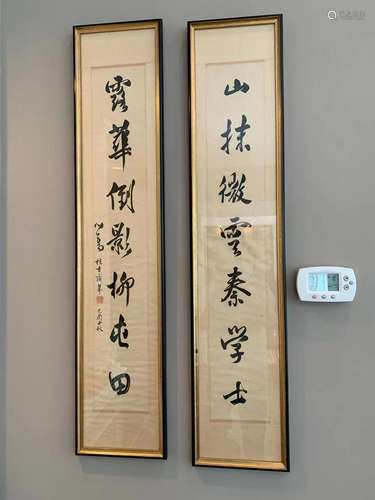 山抹微雲秦学士
露華倒影柳屯田